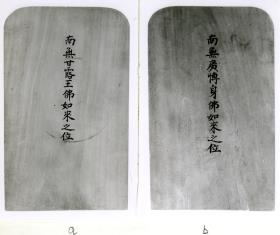 南無甘露王佛如來之位
南無廣博身佛如來之位
a
b